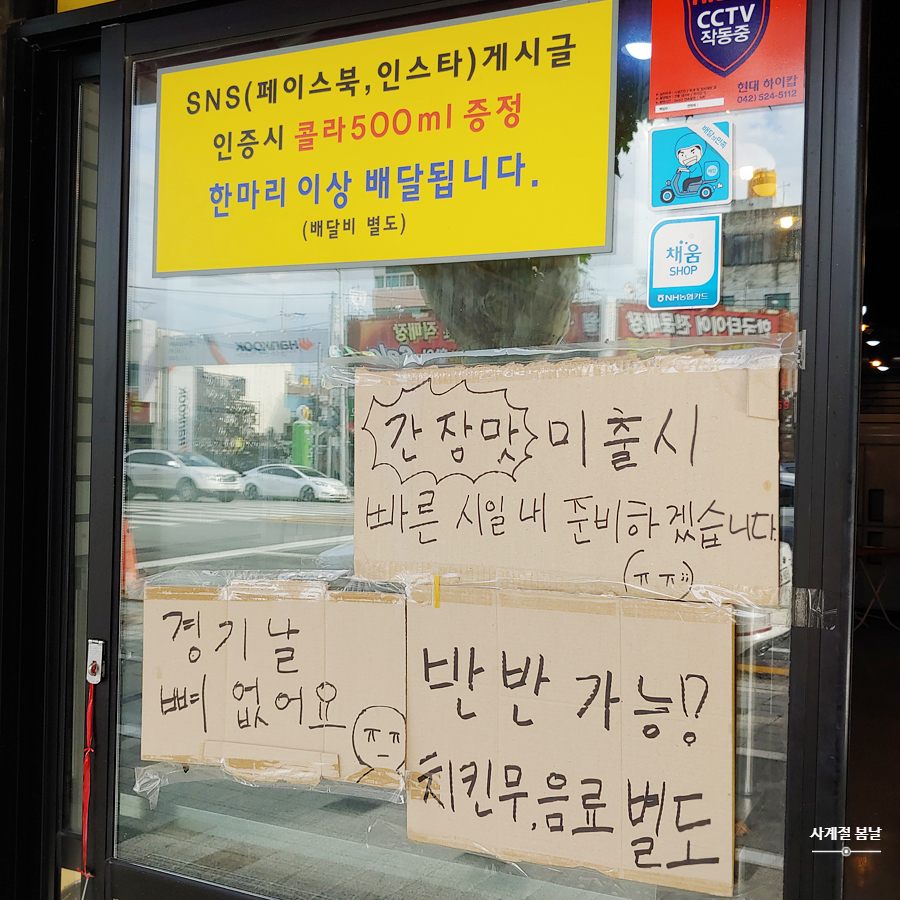 SNS(페이스북,인스타)게시글
인증시 콜라500ml 증정
한마리 이상 배달됩니다.
(배달비 별도)
CCTV
작동중
현대 하이캅
042) 524-5112
배달의민족
채움
SHOP
NH농협카드
직매장
한국타이어 전문매장
HANKOOK
간장맛 미출시
빠른 시일내 준비하겠습니다.
(ㅠㅠ;;)
경기날
뼈 없어요
ㅠㅠ
반반 가능!?
치킨무,음료 별도
사계절 봄날